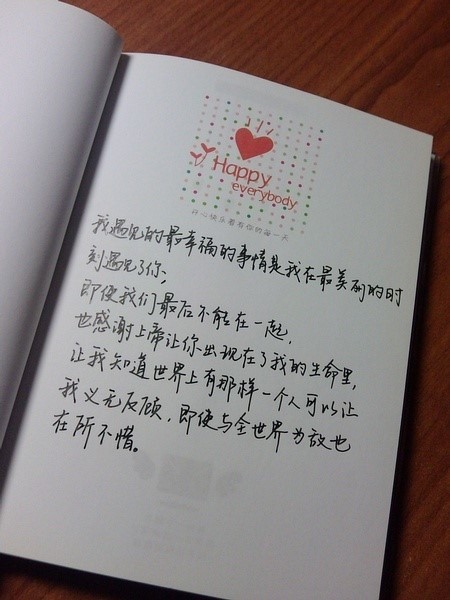 Happy
everybody
开心快乐着看你的每一天
我遇见的最幸福的事情是我在最美丽的时
刻遇见了你，
即使我们最后不能在一起，
也感谢上帝让你出现在了我的生命里，
让我知道世界上有那样一个人可以让
我义无反顾，即使与全世界为敌也
在所不惜。